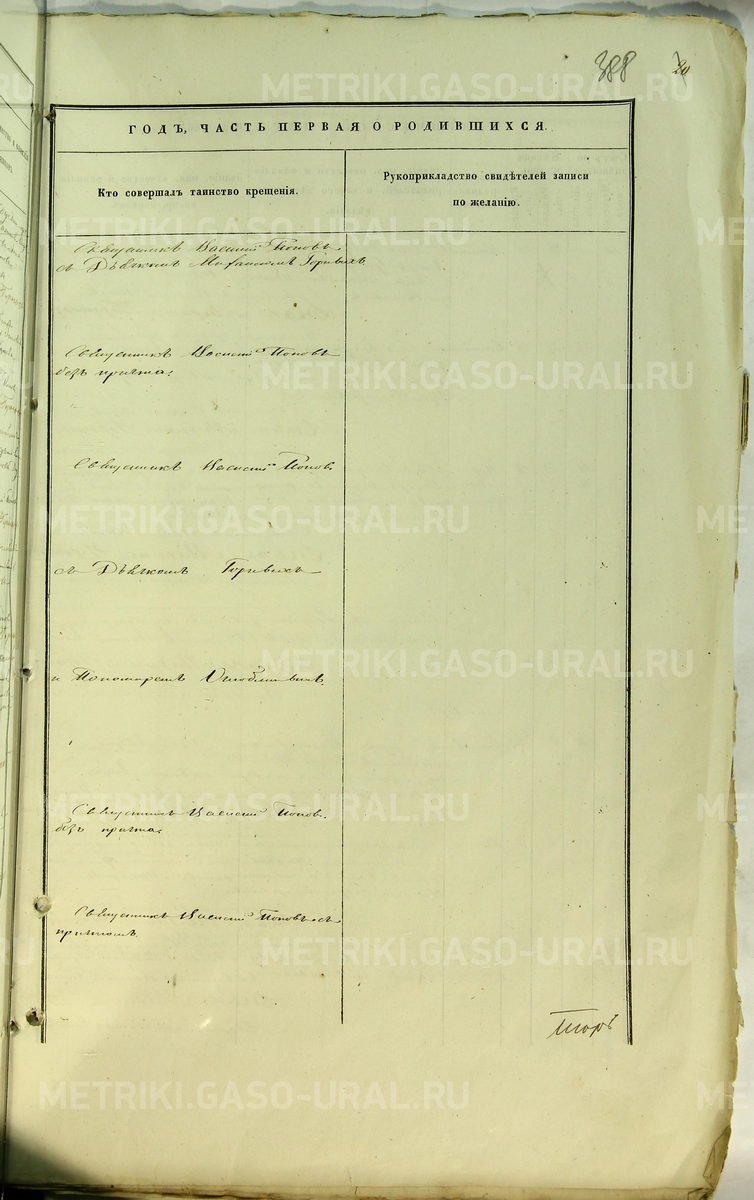 388 20
ГОДЪ, ЧАСТЬ ПЕРВАЯ О РОДИВШИХСЯ.
Кто совершалъ таинство крещенія.
Рукоприкладство свидѣтелей записи
по желанію.
Священникъ Василій Поповъ
съ Дьячкомъ Михаиломъ
Священникъ Василій Поповъ
безъ причта.
Священникъ Василій Попов
съ Дьячкомъ
и Пономаремъ
Священникъ Василій Попов.
безъ причта.
Священникъ Василій Поповъ съ
причтомъ.
METRIKI.GASO-URAL.RU